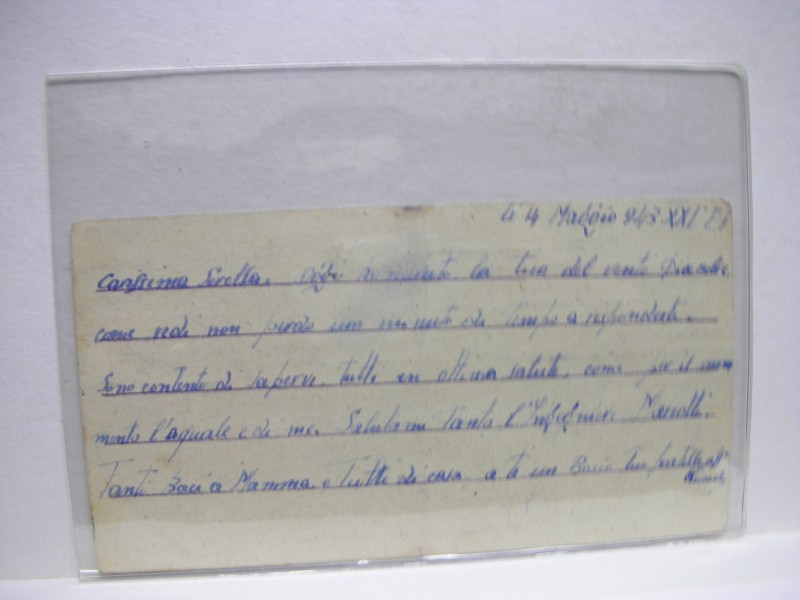 li 4 Maggio 943 XXI° E.F.
Carissima Sorella. Oggi ho la tua del vento
come vedi non perdo un minuto di tempo a rispondeti.
Sono contento di sapervi tutti in ottima salute, come per il mo
mento l'aguale e di me. Salutami tanto l'Ingegniere
Tanti Baci a Mamma e Tutti di casa a te un Bacio tuo fratello